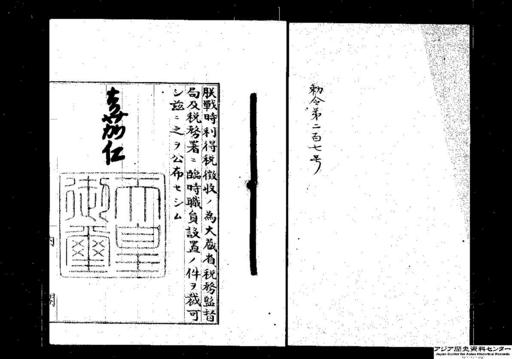 勅令第二百七号
朕戦時利得税徴収ノ為大蔵省税務監督
局及税務署ニ臨時職員設置ノ件ヲ裁可
シ茲ニ之ヲ公布セシム
嘉仁
天皇
御璽
内閣
アジア歴史資料センター
Japan Center for Asian Historical Records